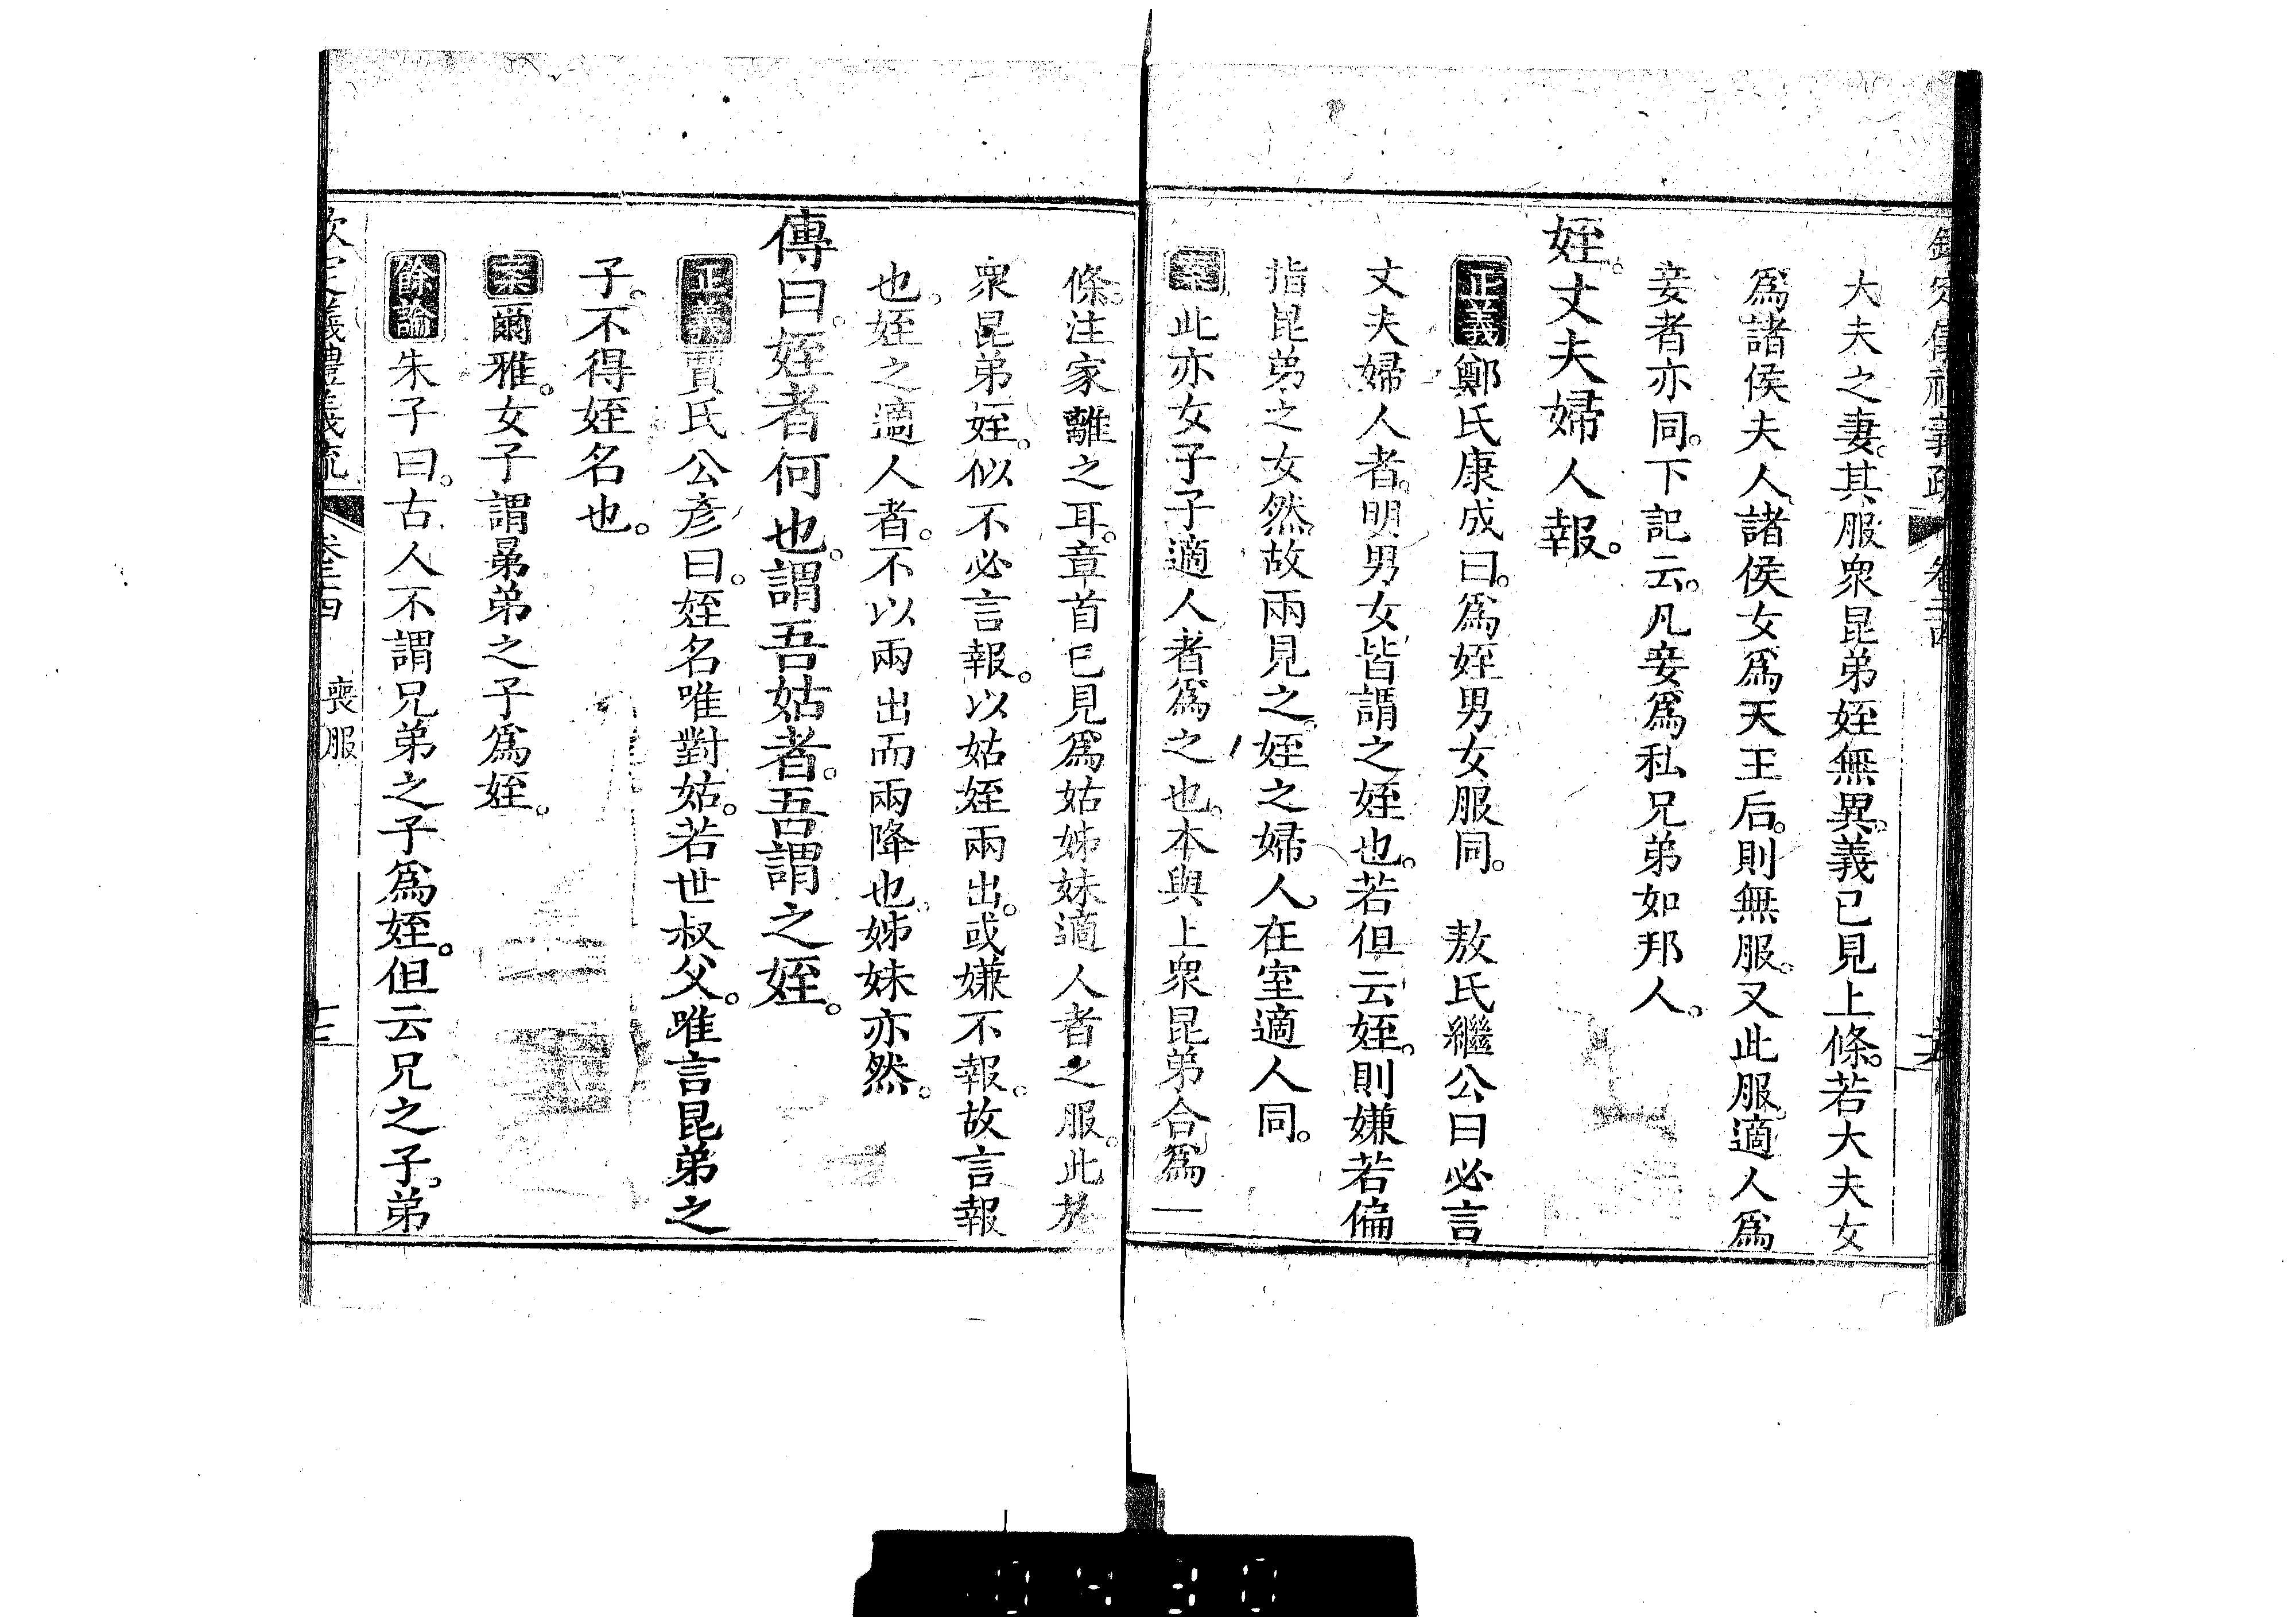 大夫之妻。其服衆昆弟姪無異。義已見上條。若大夫女
爲諸侯夫人、諸侯女爲天王后。則無服。又此服。適人爲
妾者亦同。下記云。凡妾爲私兄弟如邦人。
姪。丈夫婦人報。
正義鄭氏康成曰。爲姪男女服同。 敖氏繼公曰必言
丈夫婦人者。明男女皆謂之姪也。若但云姪。則嫌若偏
指昆弟之女然。故兩見之。姪之婦人。在室適人同。
案此亦女子子適人者爲之也。本與上衆昆弟合爲一
條。注家離之耳。章首已見爲姑姊妹適人者之服。此於
衆昆弟姪。似不必言報。以姑姪兩出。或嫌不報。故言報
也。姪之適人者。不以兩出而兩降也。姊妹亦然。
傳曰。姪者何也。謂吾姑者。吾謂之姪。
正義賈氏公彥曰。姪名唯對姑。若世叔父。唯言昆弟之
子。不得姪名也。
案爾雅。女子謂晜弟之子爲姪。
餘論朱子曰。古人不謂兄弟之子爲姪。但云兄之子。弟
欽定儀禮義疏 卷二十四 喪服